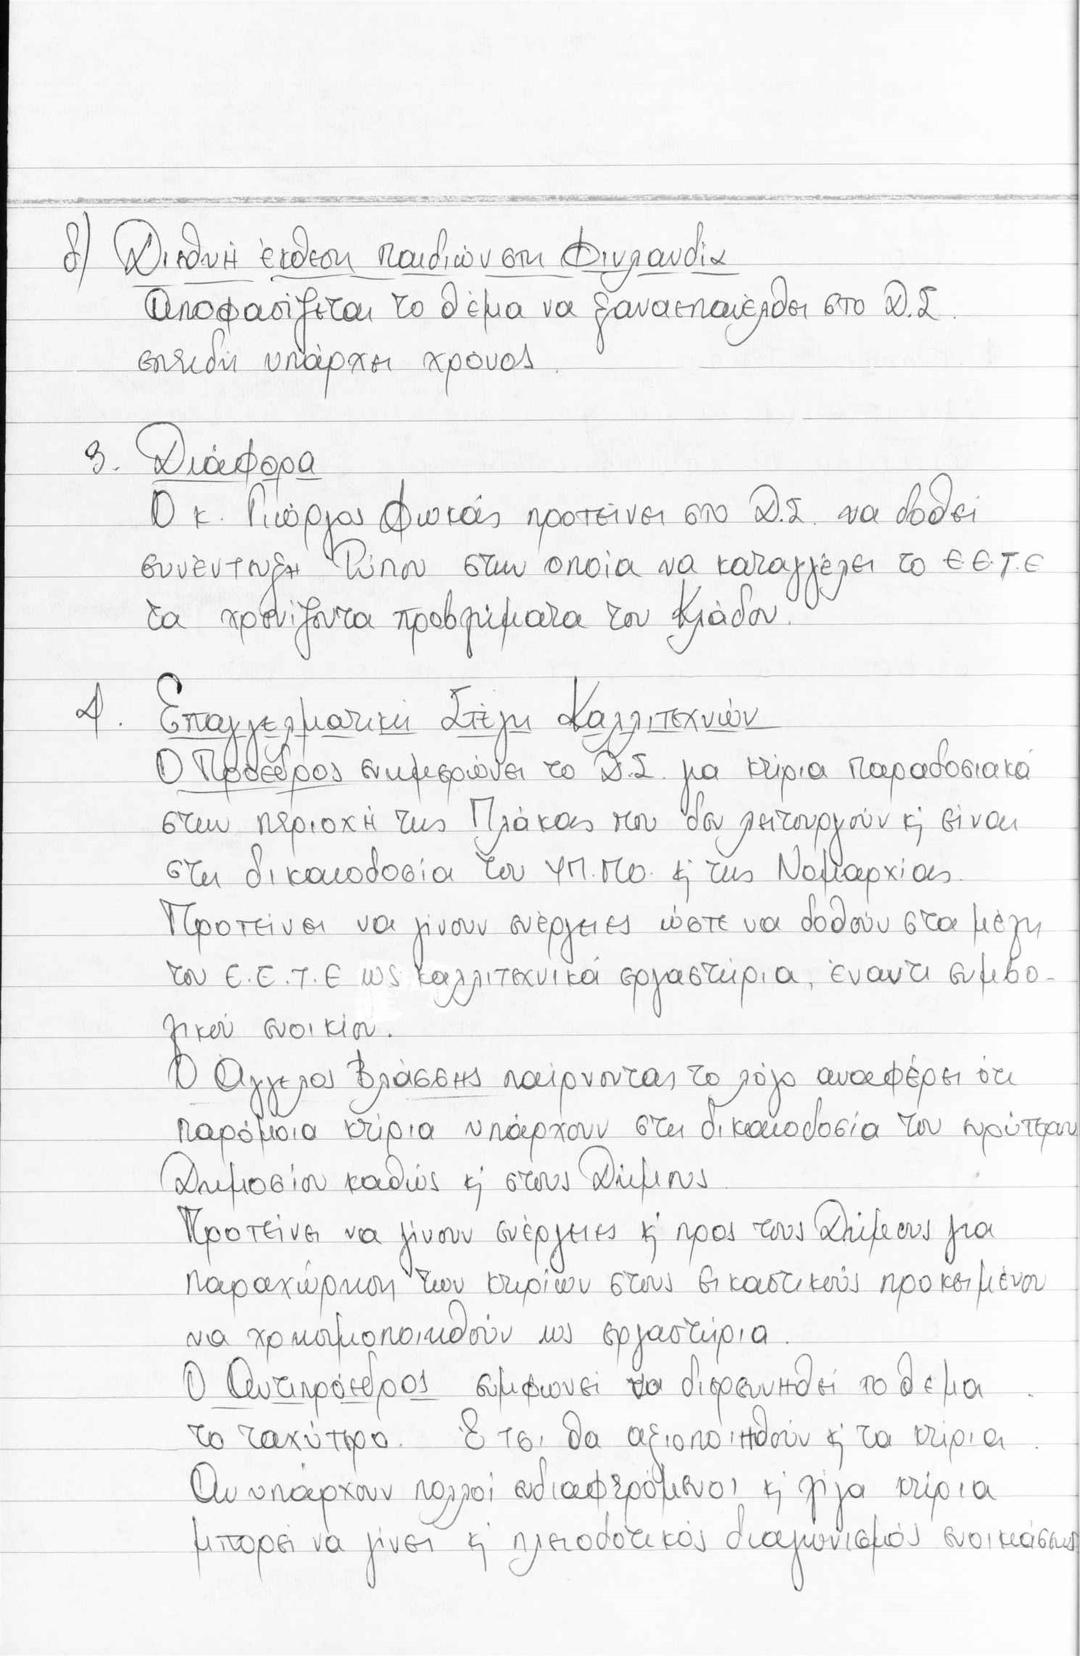 δ) Διεθνή έκθεση παιδιών στη Φινλανδία
Αποφασίζεται το θέμα να ξαναεπανέλθει στο Δ.Σ.
επειδή υπάρχει χρόνος.
3. Διάφορα
Ο κ. Γιώργος Φωκάς προτείνει στο Δ.Σ. να δοθεί
συνέντευξη Τύπου στην οποία να καταγγέλει το Ε.Ε.Τ.Ε
τα χρονίζοντα προβλήματα του Κλάδου.
4. Επαγγελματική Στέγη Καλλιτεχνών
Ο Πρόεδρος ενημερώνει το Δ.Σ. για κτίρια παραδοσιακά
στην περιοχή της Πλάκας που δεν λειτουργούν κ' είναι
στη δικαιοδοσία του ΥΠ.ΠΟ. κ' της Νομαρχίας.
Προτείνει να γίνουν ενέργειες ώστε να δοθούν στα μέλη
του Ε.Ε.Τ.Ε ως καλλιτεχνικά εργαστήρια, έναντι συμβο-
λικού ενοικίου.
Ο Άγγελος Βλάσσης παίρνοντας το λόγο αναφέρει ότι
παρόμοια κτίρια υπάρχουν στη δικαιοδοσία του ευρύτερου
Δημοσίου καθώς κ' στους Δήμους.
Προτείνει να γίνουν ενέργειες κ' προς τους Δήμους για
παραχώρηση των κτιρίων στους εικαστικούς προκειμένου
να χρησιμοποιηθούν ως εργαστήρια.
Ο Αντιπρόεδρος συμφωνεί να διερευνηθεί το θέμα
το ταχύτερο. Έτσι θα αξιοποιηθούν κ' τα κτίρια.
Αν υπάρχουν πολλοί ενδιαφερόμενοι κ' λίγα κτίρια
μπορεί να γίνει κ' πλειοδοτικός διαγωνισμός ενοικιάσεως